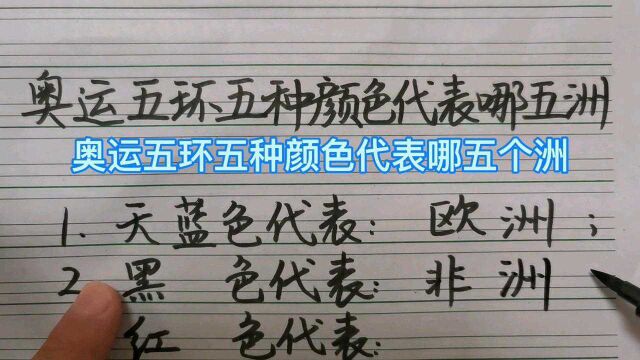 奥运五环五种颜色代表哪五洲
奥运五环五种颜色代表哪五个洲
1. 天蓝色代表：欧洲；
2 黑 色代表：非洲
红 色代表：